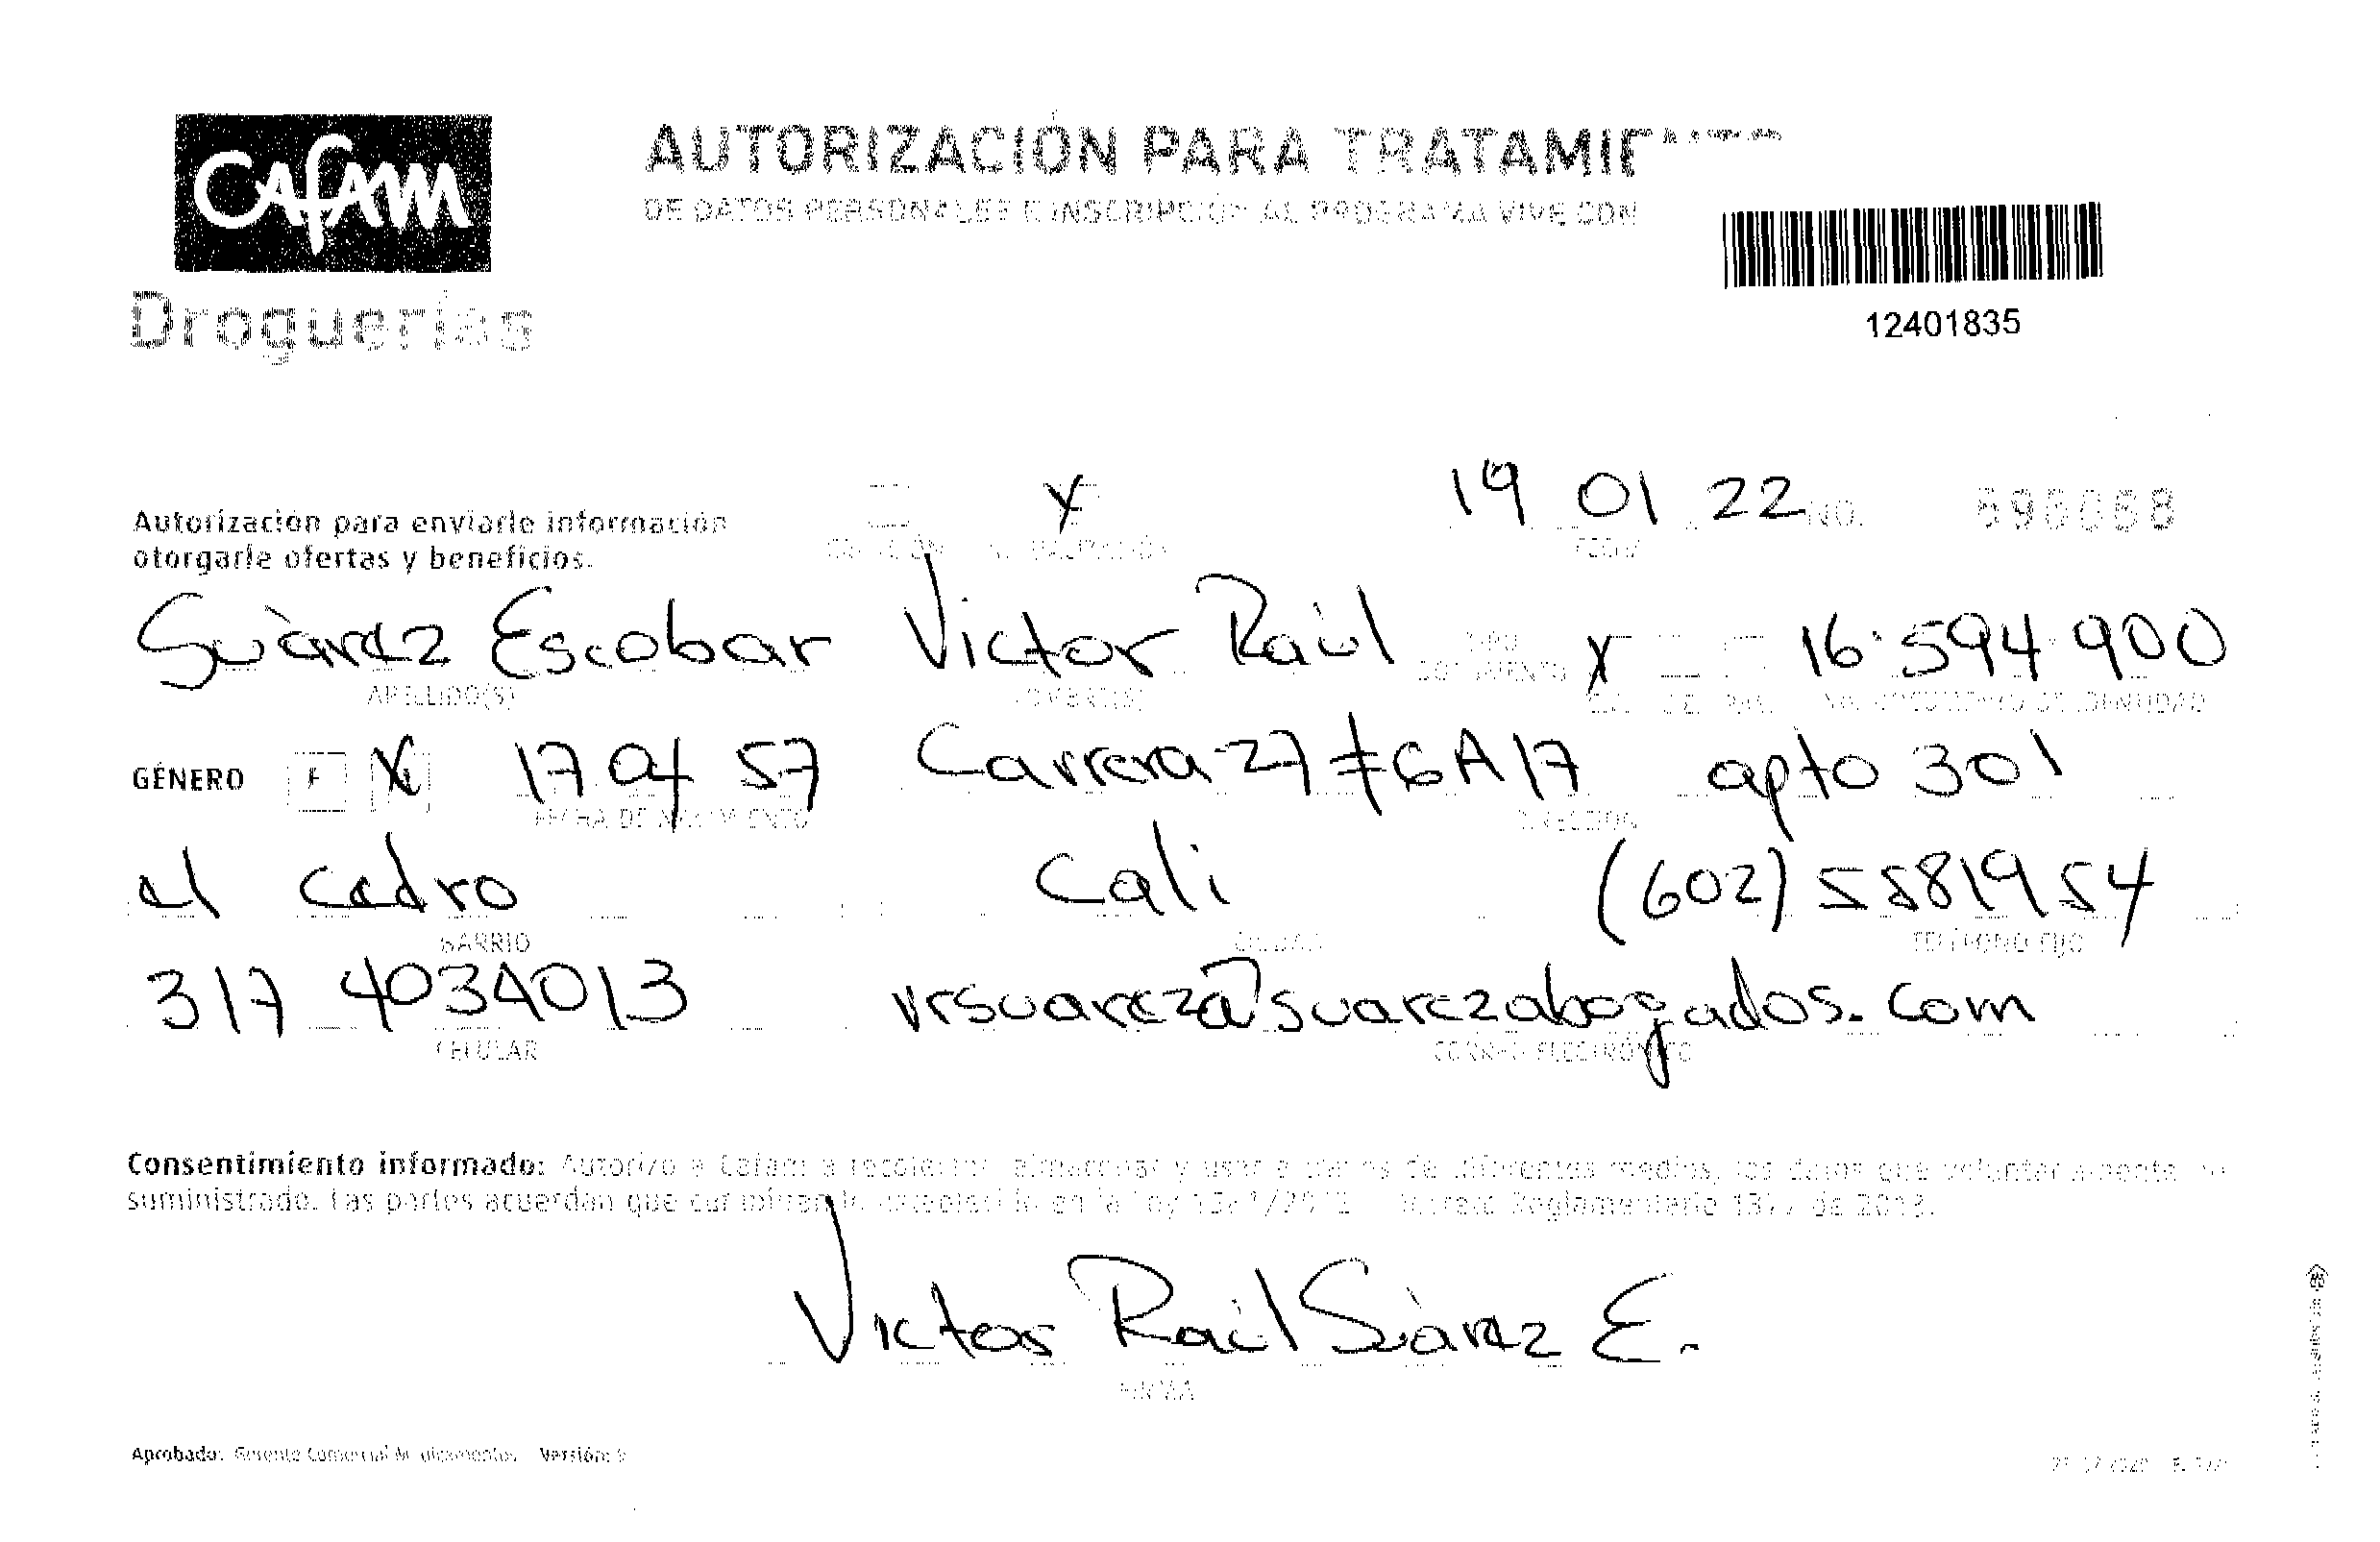 CAFAM
Droguerías
AUTORIZACIÓN PARA TRATAMIENTO
DE DATOS PERSONALES E INSCRIPCIÓN AL PROGRAMA VIVE CON
12401835
Autorización para enviarle información
otorgarle ofertas y beneficios.
X
ACTUALIZACIÓN
19 01 22
FECHA
NO.
Suàrez Escobar Victor Raùl
APELLIDO(S) NOMBRE(S)
TIPO DOCUMENTO X 16.594.900
C.C. C.E. PAS. NO. DOCUMENTO DE IDENTIDAD
GÉNERO F X 17 04 57 Carrera 27 # 6A 17 apto 301
FECHA DE NACIMIENTO DIRECCIÓN
el cedro Cali (602) 5581954
BARRIO CIUDAD TELÉFONO FIJO
317 4034013 vrsuarez@suarezabogados.com
CELULAR CORREO ELECTRÓNICO
Consentimiento informado: Autorizo a Cafam a recolectar, almacenar y usar a través de diferentes medios, los datos que voluntariamente he
suministrado. Las partes acuerdan que cumplirán lo establecido en la Ley 1581/2012 Decreto Reglamentario 1377 de 2013.
Victor Raùl Suàrez E.
FIRMA
Aprobado: Gerente Comercial Medicamentos Versión: